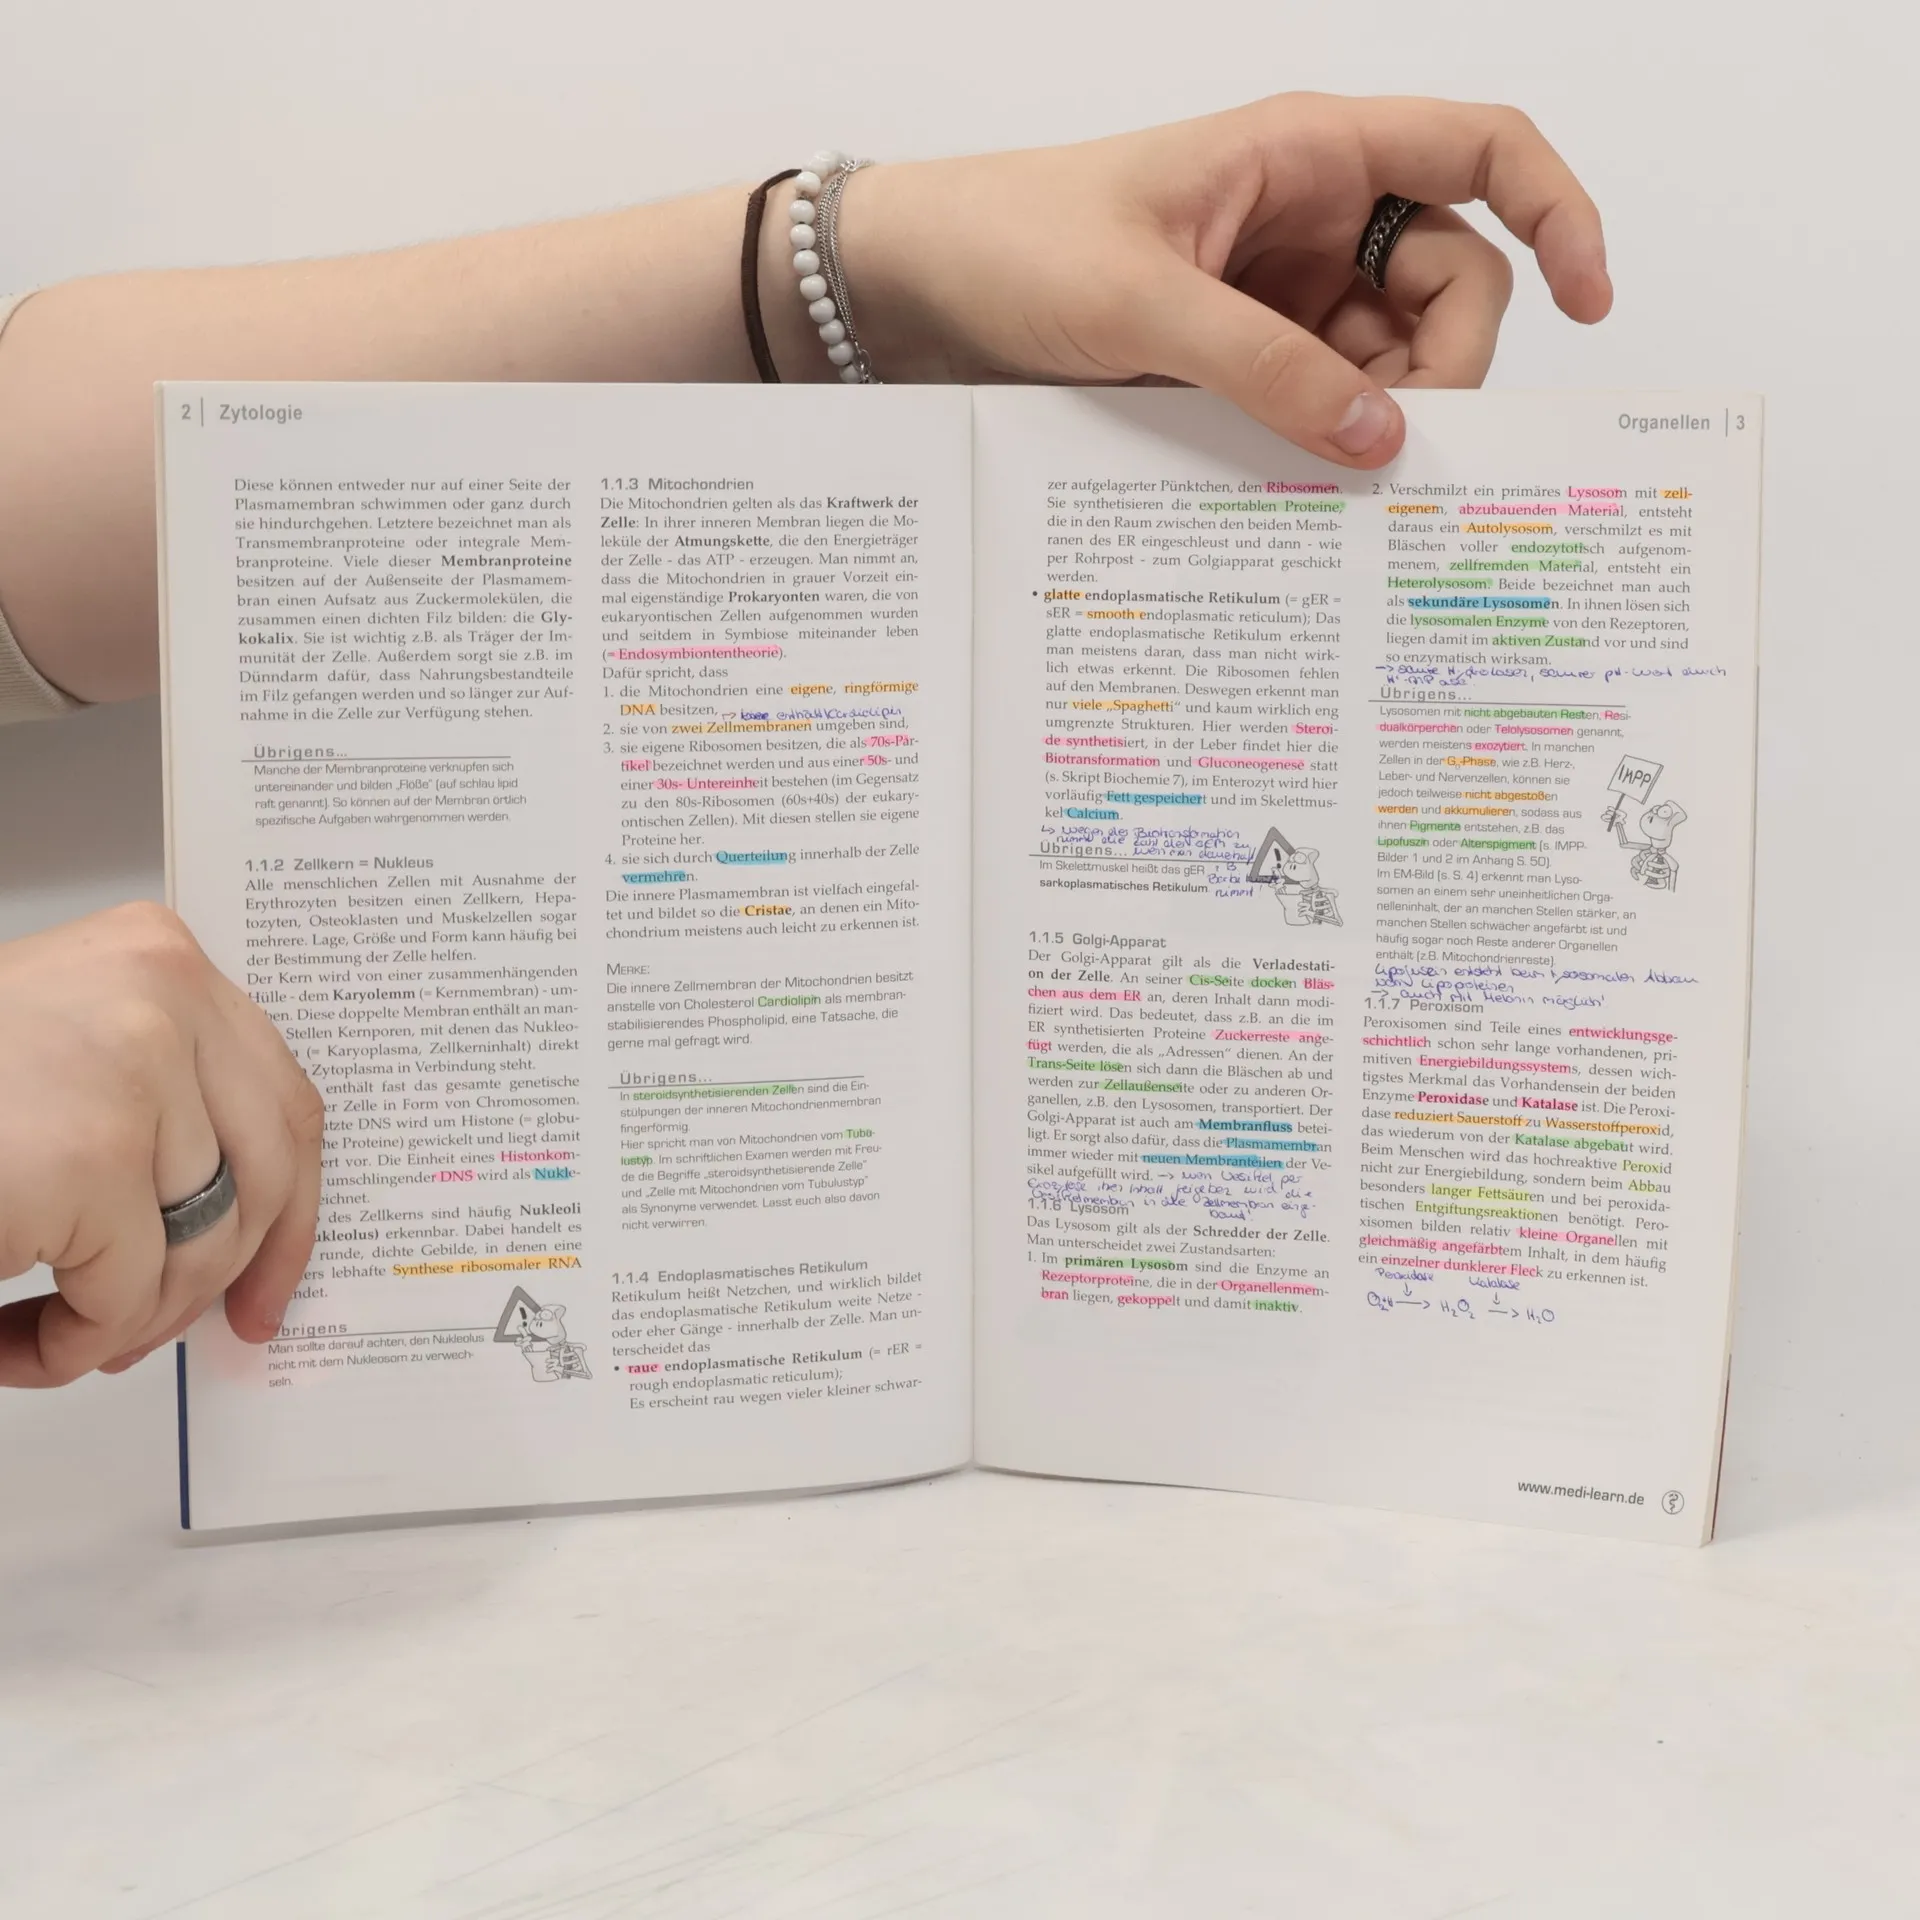 2 | Zytologie
Diese können entweder nur auf einer Seite der
Plasmamembran schwimmen oder ganz durch
sie hindurchgehen. Letztere bezeichnet man als
Transmembranproteine oder integrale Mem-
branproteine. Viele dieser Membranproteine
besitzen auf der Außenseite der Plasmamem-
bran einen Aufsatz aus Zuckermolekülen, die
zusammen einen dichten Filz bilden: die Gly-
kokalix. Sie ist wichtig z.B. als Träger der Im-
munität der Zelle. Außerdem sorgt sie z.B. im
Dünndarm dafür, dass Nahrungsbestandteile
im Filz gefangen werden und so länger zur Auf-
nahme in die Zelle zur Verfügung stehen.
Übrigens...
Manche der Membranproteine verknüpfen sich
untereinander und bilden „Flöße" (auf schlau lipid
raft genannt). So können auf der Membran örtlich
spezifische Aufgaben wahrgenommen werden.
1.1.2 Zellkern = Nukleus
Alle menschlichen Zellen mit Ausnahme der
Erythrozyten besitzen einen Zellkern, Hepa-
tozyten, Osteoklasten und Muskelzellen sogar
mehrere. Lage, Größe und Form kann häufig bei
der Bestimmung der Zelle helfen.
Der Kern wird von einer zusammenhängenden
Hülle - dem Karyolemm (= Kernmembran) - um-
ben. Diese doppelte Membran enthält an man-
Stellen Kernporen, mit denen das Nukleo-
(= Karyoplasma, Zellkerninhalt) direkt
Zytoplasma in Verbindung steht.
enthält fast das gesamte genetische
er Zelle in Form von Chromosomen.
tzte DNS wird um Histone (= globu-
he Proteine) gewickelt und liegt damit
ert vor. Die Einheit eines Histonkom-
umschlingender DNS wird als Nukle-
eichnet.
des Zellkerns sind häufig Nukleoli
ukleolus) erkennbar. Dabei handelt es
runde, dichte Gebilde, in denen eine
ers lebhafte Synthese ribosomaler RNA
ndet.
brigens
Man sollte darauf achten, den Nukleolus
nicht mit dem Nukleosom zu verwech-
seln.
1.1.3 Mitochondrien
Die Mitochondrien gelten als das Kraftwerk der
Zelle: In ihrer inneren Membran liegen die Mo-
leküle der Atmungskette, die den Energieträger
der Zelle - das ATP - erzeugen. Man nimmt an,
dass die Mitochondrien in grauer Vorzeit ein-
mal eigenständige Prokaryonten waren, die von
eukaryontischen Zellen aufgenommen wurden
und seitdem in Symbiose miteinander leben
(= Endosymbiontentheorie).
Dafür spricht, dass
1. die Mitochondrien eine eigene, ringförmige
DNA besitzen,
→ enthält Cardiolipin
2. sie von zwei Zellmembranen umgeben sind,
3. sie eigene Ribosomen besitzen, die als 70s-Par-
tikel bezeichnet werden und aus einer 50s- und
einer 30s- Untereinheit bestehen (im Gegensatz
zu den 80s-Ribosomen (60s+40s) der eukary-
ontischen Zellen). Mit diesen stellen sie eigene
Proteine her.
4. sie sich durch Querteilung innerhalb der Zelle
vermehren.
Die innere Plasmamembran ist vielfach eingefal-
tet und bildet so die Cristae, an denen ein Mito-
chondrium meistens auch leicht zu erkennen ist.
MERKE:
Die innere Zellmembran der Mitochondrien besitzt
anstelle von Cholesterol Cardiolipin als membran-
stabilisierendes Phospholipid, eine Tatsache, die
gerne mal gefragt wird.
Übrigens...
In steroidsynthetisierenden Zellen sind die Ein-
stülpungen der inneren Mitochondrienmembran
fingerförmig.
Hier spricht man von Mitochondrien vom Tubu-
lustyp. Im schriftlichen Examen werden mit Freu-
de die Begriffe „steroidsynthetisierende Zelle"
und „Zelle mit Mitochondrien vom Tubulustyp"
als Synonyme verwendet. Lasst euch also davon
nicht verwirren.
1.1.4 Endoplasmatisches Retikulum
Retikulum heißt Netzchen, und wirklich bildet
das endoplasmatische Retikulum weite Netze -
oder eher Gänge - innerhalb der Zelle. Man un-
terscheidet das
• raue endoplasmatische Retikulum (= rER =
rough endoplasmatic reticulum);
Es erscheint rau wegen vieler kleiner schwar-
Organellen | 3
zer aufgelagerter Pünktchen, den Ribosomen.
Sie synthetisieren die exportablen Proteine,
die in den Raum zwischen den beiden Memb-
ranen des ER eingeschleust und dann - wie
per Rohrpost - zum Golgiapparat geschickt
werden.
• glatte endoplasmatische Retikulum (= gER =
sER = smooth endoplasmatic reticulum); Das
glatte endoplasmatische Retikulum erkennt
man meistens daran, dass man nicht wirk-
lich etwas erkennt. Die Ribosomen fehlen
auf den Membranen. Deswegen erkennt man
nur viele „Spaghetti" und kaum wirklich eng
umgrenzte Strukturen. Hier werden Steroi-
de synthetisiert, in der Leber findet hier die
Biotransformation und Gluconeogenese statt
(s. Skript Biochemie 7), im Enterozyt wird hier
vorläufig Fett gespeichert und im Skelettmus-
kel Calcium.
↳ wegen der Biotransformation
nimmt die Zahl des gER zu,
Übrigens... wenn man dauerhaft
Im Skelettmuskel heißt das gER z.B.
sarkoplasmatisches Retikulum nimmt!
1.1.5 Golgi-Apparat
Der Golgi-Apparat gilt als die Verladestati-
on der Zelle. An seiner Cis-Seite docken Bläs-
chen aus dem ER an, deren Inhalt dann modi-
fiziert wird. Das bedeutet, dass z.B. an die im
ER synthetisierten Proteine Zuckerreste ange-
fügt werden, die als „Adressen" dienen. An der
Trans-Seite lösen sich dann die Bläschen ab und
werden zur Zellaußenseite oder zu anderen Or-
ganellen, z.B. den Lysosomen, transportiert. Der
Golgi-Apparat ist auch am Membranfluss betei-
ligt. Er sorgt also dafür, dass die Plasmamembran
immer wieder mit neuen Membranteilen der Ve-
sikel aufgefüllt wird. → wenn Vesikel per
Exozytose ihren Inhalt freigeben wird die
Vesikelmembran in die Zellmembran einge-
baut!
1.1.6 Lysosom
Das Lysosom gilt als der Schredder der Zelle.
Man unterscheidet zwei Zustandsarten:
1. Im primären Lysosom sind die Enzyme an
Rezeptorproteine, die in der Organellenmem-
bran liegen, gekoppelt und damit inaktiv.
2. Verschmilzt ein primäres Lysosom mit zell-
eigenem, abzubauenden Material, entsteht
daraus ein Autolysosom, verschmilzt es mit
Bläschen voller endozytotisch aufgenom-
menem, zellfremden Material, entsteht ein
Heterolysosom. Beide bezeichnet man auch
als sekundäre Lysosomen. In ihnen lösen sich
die lysosomalen Enzyme von den Rezeptoren,
liegen damit im aktiven Zustand vor und sind
so enzymatisch wirksam.
→ saure Hydrolasen, saurer pH-Wert durch
H⁺-ATPase
Übrigens...
Lysosomen mit nicht abgebauten Resten, Resi-
dualkörperchen oder Telolysosomen genannt,
werden meistens exozytiert. In manchen
Zellen in der G₀-Phase, wie z.B. Herz-,
Leber- und Nervenzellen, können sie
jedoch teilweise nicht abgestoßen
werden und akkumulieren, sodass aus
ihnen Pigmente entstehen, z.B. das
Lipofuszin oder Alterspigment (s. IMPP-
Bilder 1 und 2 im Anhang S. 50).
Im EM-Bild (s. S. 4) erkennt man Lyso-
somen an einem sehr uneinheitlichen Orga-
nelleninhalt, der an manchen Stellen stärker, an
manchen Stellen schwächer angefärbt ist und
häufig sogar noch Reste anderer Organellen
enthält (z.B. Mitochondrienreste).
IMPP
Lipofuszin entsteht beim lysosomalen Abbau
von Lipoproteinen
→ auch mit Melanin möglich!
1.1.7 Peroxisom
Peroxisomen sind Teile eines entwicklungsge-
schichtlich schon sehr lange vorhandenen, pri-
mitiven Energiebildungssystems, dessen wich-
tigstes Merkmal das Vorhandensein der beiden
Enzyme Peroxidase und Katalase ist. Die Peroxi-
dase reduziert Sauerstoff zu Wasserstoffperoxid,
das wiederum von der Katalase abgebaut wird.
Beim Menschen wird das hochreaktive Peroxid
nicht zur Energiebildung, sondern beim Abbau
besonders langer Fettsäuren und bei peroxida-
tischen Entgiftungsreaktionen benötigt. Pero-
xisomen bilden relativ kleine Organellen mit
gleichmäßig angefärbtem Inhalt, in dem häufig
ein einzelner dunklerer Fleck zu erkennen ist.
Peroxidase Katalase
→ H₂O₂ → H₂O
www.medi-learn.de